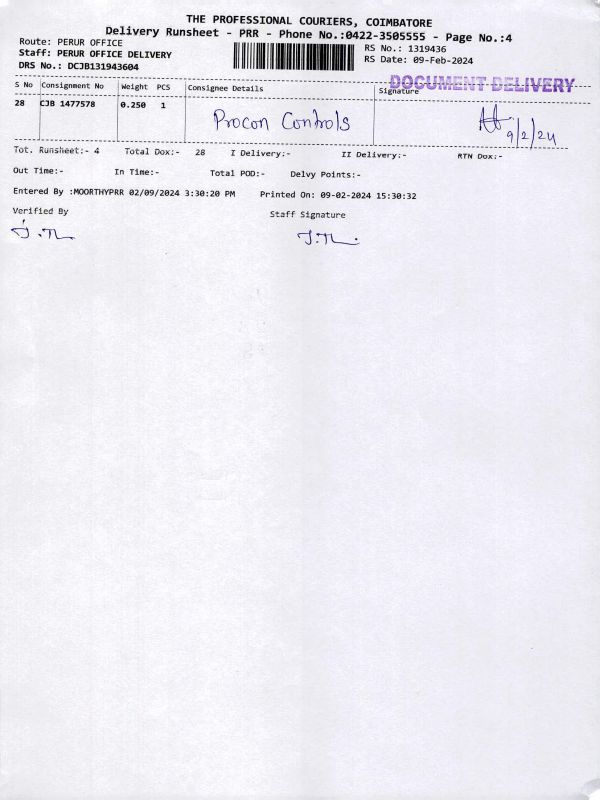 THE PROFESSIONAL COURIERS, COIMBATORE
Delivery Runsheet - PRR - Phone No.:0422-3505555 - Page No.:4
Route: PERUR OFFICE
Staff: PERUR OFFICE DELIVERY
DRS No.: DCJB131943604
RS No.: 1319436
RS Date: 09-Feb-2024
DOCUMENT DELIVERY
S No Consignment No Weight PCS Consignee Details Signature
28 CJB 1477578 0.250 1 Procon Controls
9/2/24
Tot. Runsheet:- 4 Total Dox:- 28 I Delivery:- II Delivery:- RTN Dox:-
Out Time:- In Time:- Total POD:- Delvy Points:-
Entered By :MOORTHYPRR 02/09/2024 3:30:20 PM Printed On: 09-02-2024 15:30:32
Verified By Staff Signature